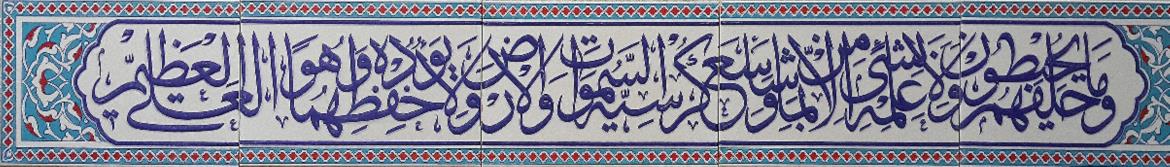 وما خلفهم ولا يحيطون بشئ من علمه الا بما شا وسع كرسيه السموات والارض ولا يؤده حفظهما وهو العلي العظيم